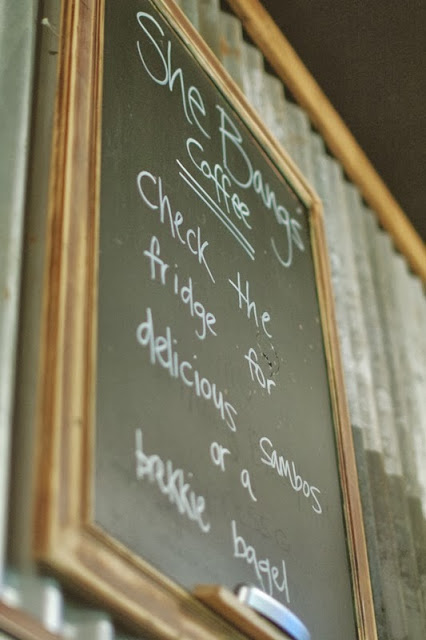 She Bangs
Coffee
Check the
fridge for
delicious sambos
or a
brekkie bagel